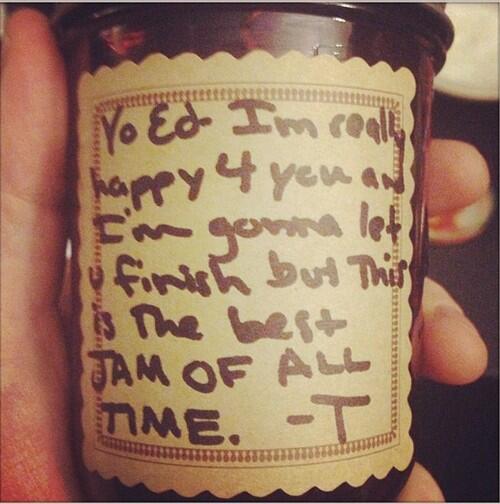 Yo Ed I'm really
happy 4 you and
I'm gonna let
U finish but This
is The best
JAM OF ALL
TIME. -T